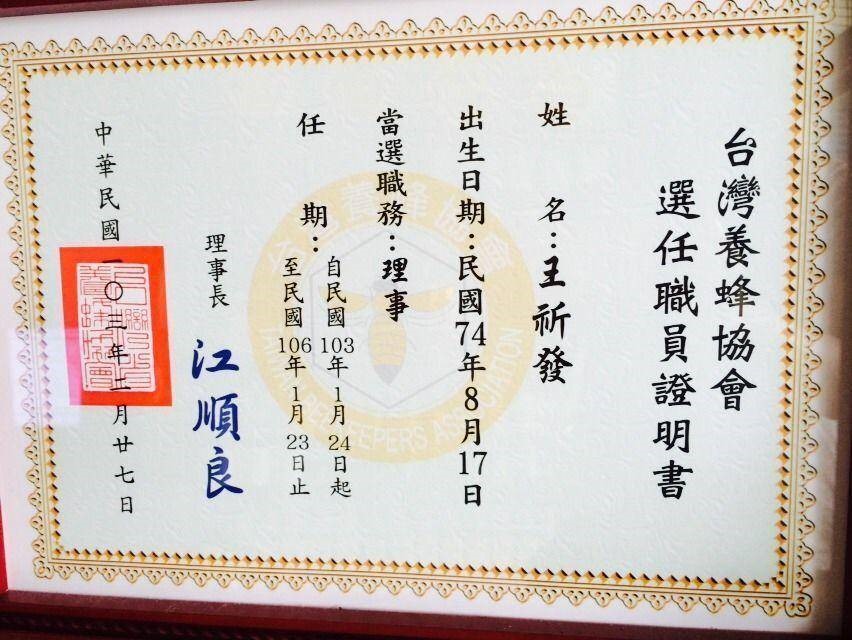 台灣養蜂協會
選任職員證明書
姓名：王祈發
出生日期：民國74年8月17日
當選職務：理事
任期：
自民國103年1月24日起
至民國106年1月23日止
理事長 江順良
中華民國一〇三年二月廿七日
養蜂協會
BEEKEEPERS ASSOCIATION